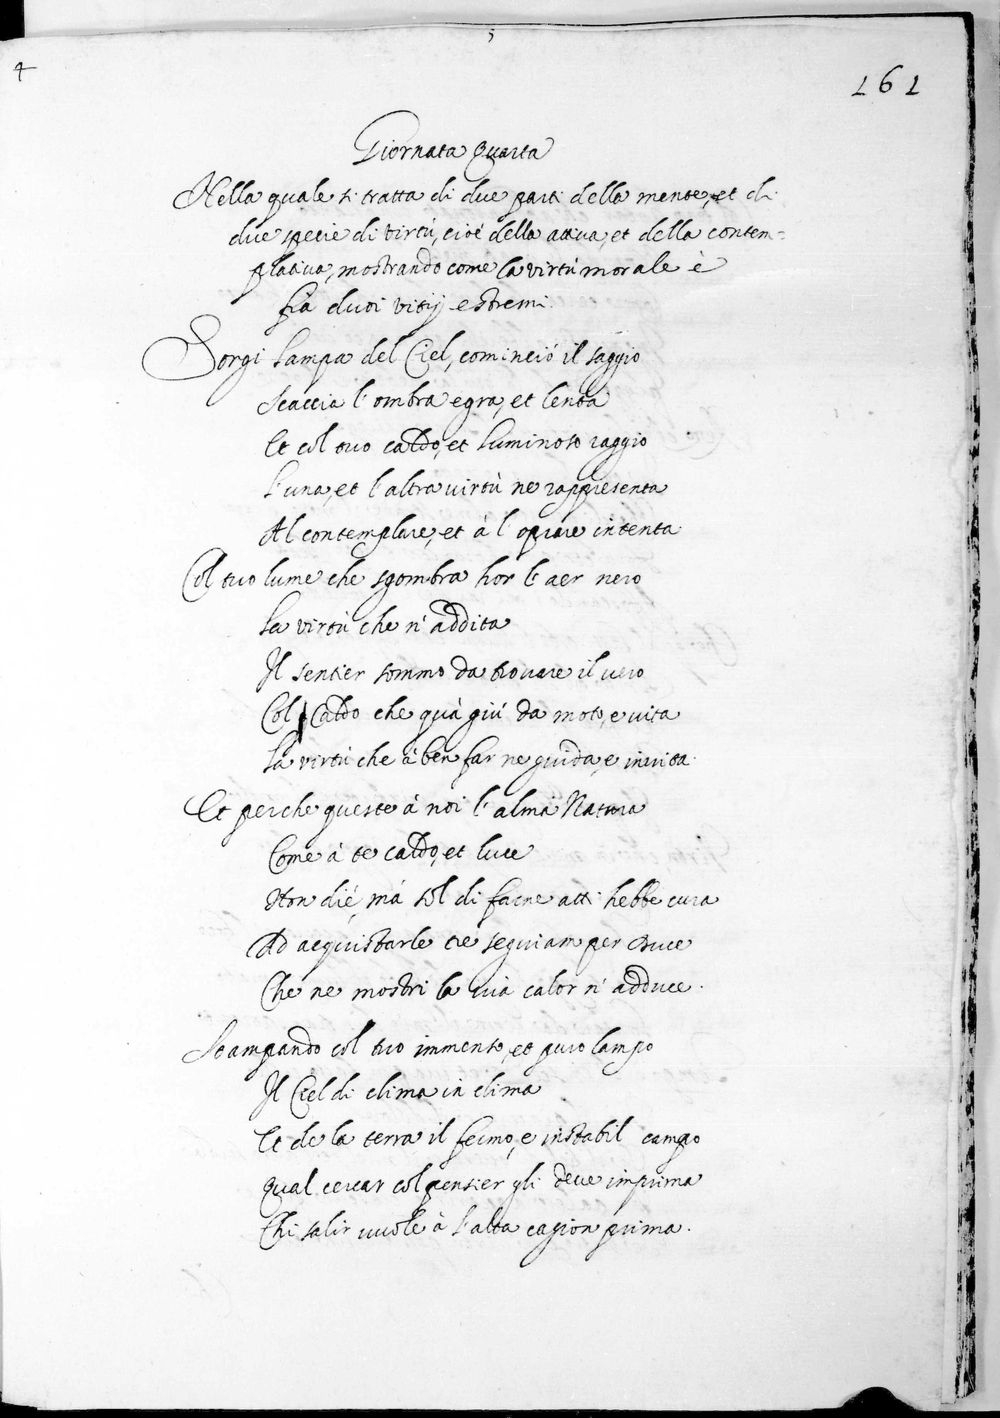 4
161
Giornata Quarta
Nella quale si tratta di due parti della mente, et di
due spetie di virtù, cioè della attiua, et della contem=
platiua, mostrando come la virtù morale è
fra duoi vitij estremi.
Sorgi lampa del Ciel, cominciò il saggio
Scaccia l'ombra egra, et lenta
Et col tuo caldo, et luminoso raggio
L'una, et l'altra virtù ne rappresenta
Al contemplare, et à l'oprare intenta
Col tuo lume che sgombra hor l'aer nero
La virtù che n'addita
Il sentier sommo da trouare il uero
Col Caldo che quà giù da moto, e uita
La virtù che à ben far ne guida, e inuita.
Et perche queste à noi l'alma Natura
Come à te caldo, et luce
Non diè, mà sol di farne atti hebbe cura
Ad acquistarle te seguiam per Duce
Che ne mostri la uia calor n'adduce.
Stampando col tuo immenso, et puro lampo
Il Ciel di clima in clima
Et de la terra il fermo, e instabil campo
Qual cercar col pensier gli deue imprima
Chi salir uuole à l'alta cagion prima.